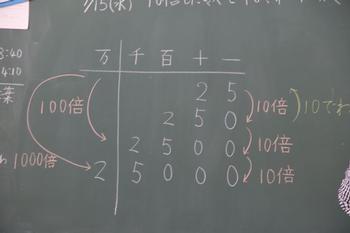 7/15(水) 10倍
8:40
4:10
葉
万 千 百 十 一
2 5
2 5 0
2 5 0 0
2 5 0 0 0
100倍
1000倍
10倍
10倍
10倍
10でわ